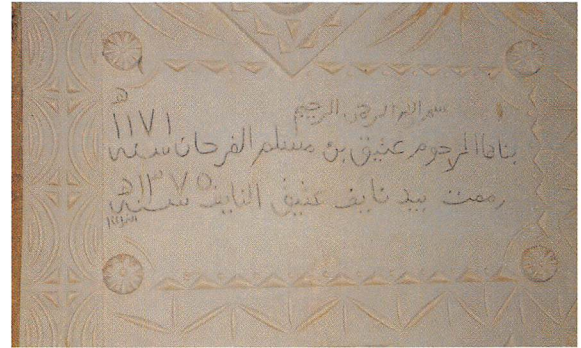 بسم الله الرحمن الرحيم
بناها المرحوم عتيق بن مسلم الفرحان سنة ١١٧١ هـ
رممت بيد نايف عتيق النايف سنة ١٣٧٥ هـ